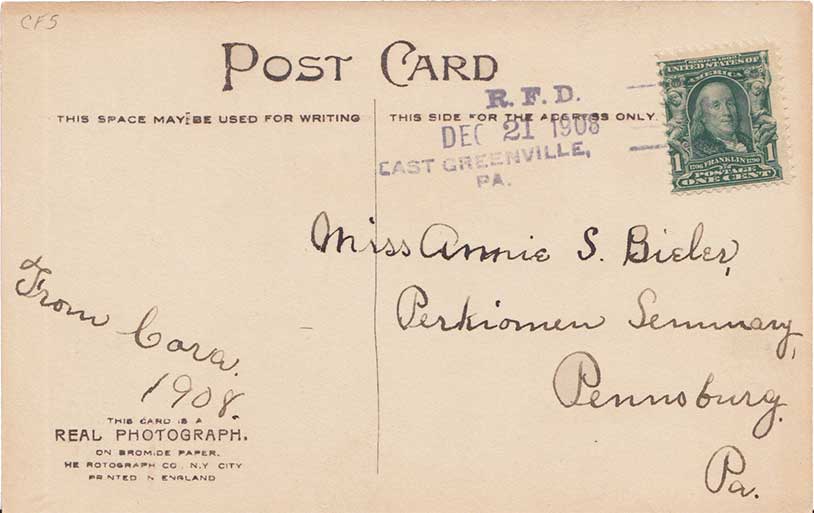 CFS
POST CARD
THIS SPACE MAY BE USED FOR WRITING
THIS SIDE FOR THE ADDRESS ONLY.
R. F. D.
DEC 21 1908
EAST GREENVILLE,
PA.
SERIES 1902
UNITED STATES OF
AMERICA
1706 FRANKLIN 1790
POSTAGE
1 ONE CENT 1
Miss Annie S. Bieler,
Perkiomen Seminary,
Pennsburg.
Pa.
From Cora.
1908.
THIS CARD IS A
REAL PHOTOGRAPH.
ON BROMIDE PAPER.
HE ROTOGRAPH CO. N.Y CITY
PRINTED IN ENGLAND